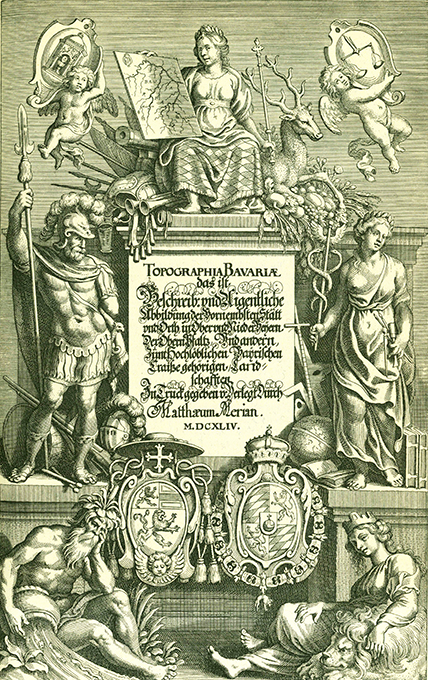 TOPOGRAPHIA BAVARIÆ
das ist
Beschreib: vnd Aigentliche
Abbildung der Vornembsten Stätt
vnd Orth, in Ober vnd Nieder Beyern.
Der Obern Pfaltz, Vnd andern,
Zum Hochlöblichen Bayrischen
Craiße gehörigen, Land
schafften.
In Truck gegeben v: Verlegt durch
Matthæum Merian.
M.DCXLIV.